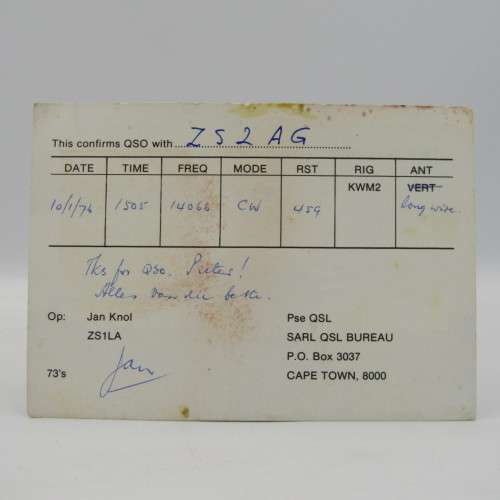 This confirms QSO with ZS2AG
DATE TIME FREQ MODE RST RIG ANT
10/1/76 1505 14060 CW 459 KWM2 VERT
long wire.
Tks for QSO. Pieter!
Alles van die beste.
Op: Jan Knol Pse QSL
ZS1LA SARL QSL BUREAU
P.O. Box 3037
73's Jan CAPE TOWN, 8000